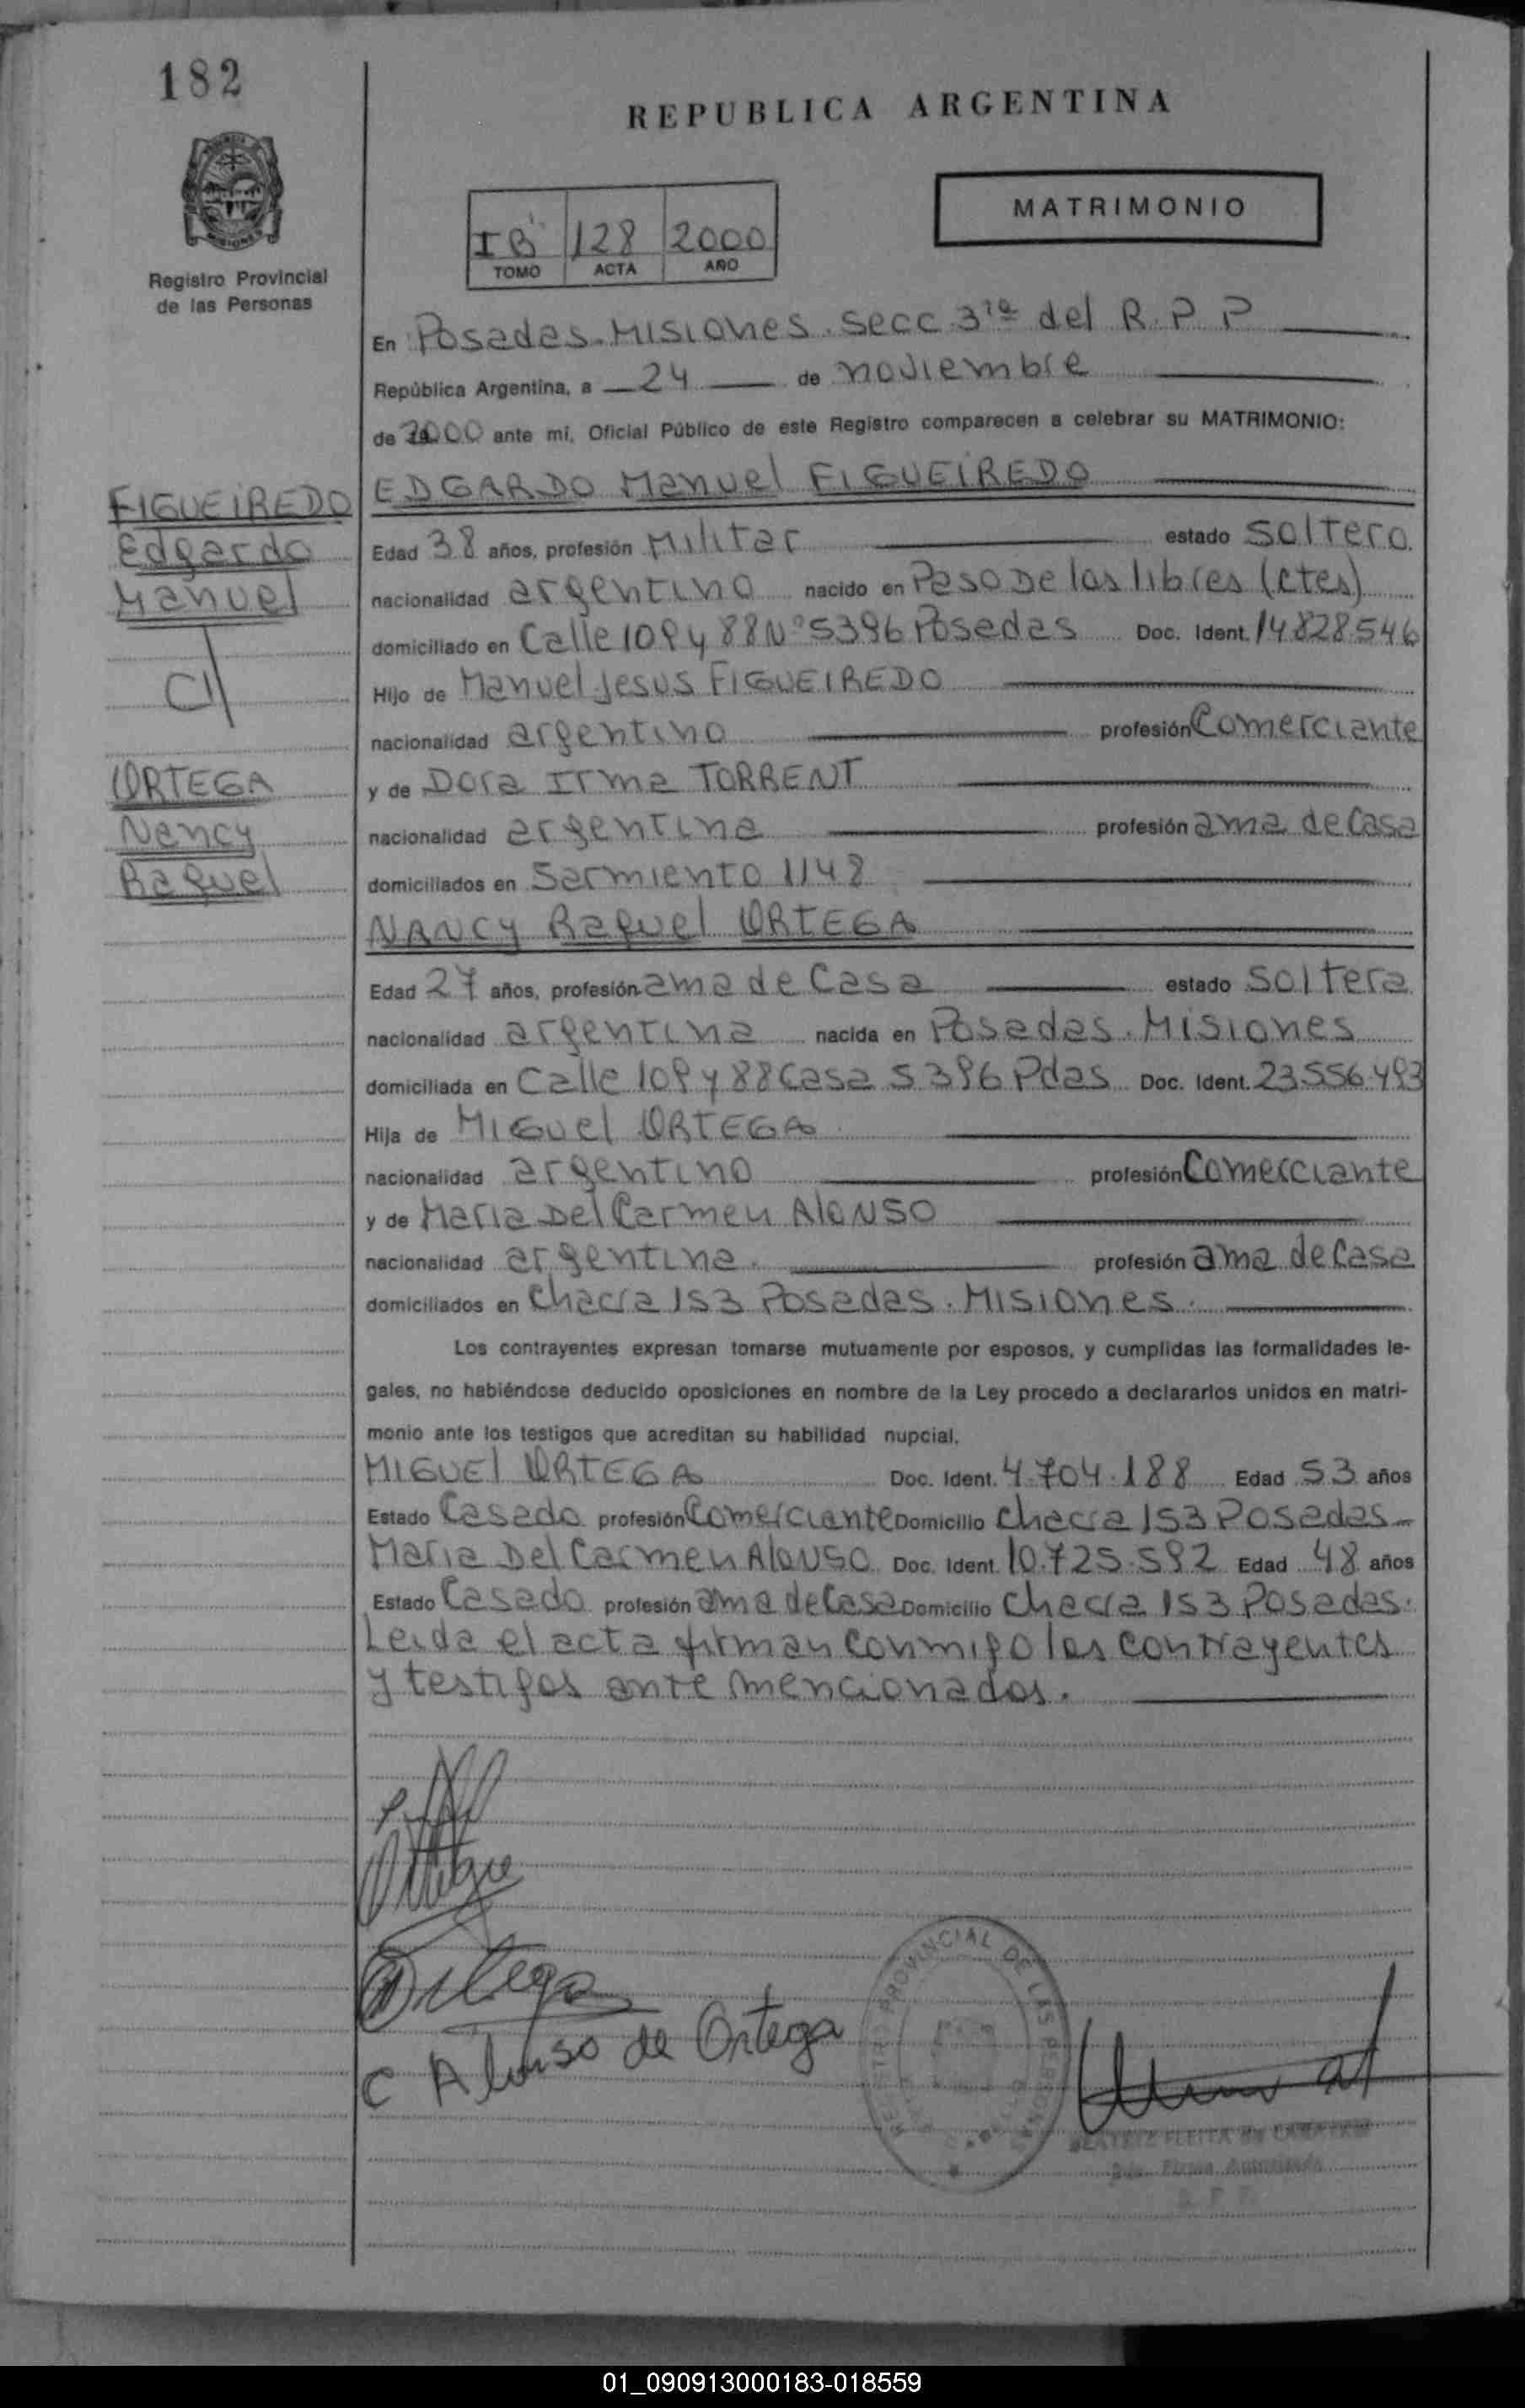 182
REPUBLICA ARGENTINA
MATRIMONIO
IB 128 2000
TOMO ACTA AÑO
Registro Provincial
de las Personas
En Posadas-Misiones. secc. 3ra del R. P. P
República Argentina, a 24 de noviembre
de 2000 ante mí, Oficial Público de este Registro comparecen a celebrar su MATRIMONIO:
FIGUEIREDO
Edgardo
Manuel
C1
ORTEGA
Nancy
Raquel
EDGARDO Manuel FIGUEIREDO
Edad 38 años, profesión Militar estado soltero
nacionalidad argentino nacido en Paso De los libres (ctes)
domiciliado en Calle 109 y 88 Nº 5396 Posadas Doc. Ident. 14.828.546
Hijo de Manuel Jesus FIGUEIREDO
nacionalidad argentino profesión Comerciante
y de Dora Irma TORRENT
nacionalidad argentina profesión ama de Casa
domiciliados en Sarmiento 1148
NANCY Raquel ORTEGA
Edad 27 años, profesión ama de Casa estado soltera
nacionalidad argentina nacida en Posadas. Misiones
domiciliada en Calle 109 y 88 Casa 5396 Pdas Doc. Ident. 23.556.493
Hija de Miguel ORTEGA
nacionalidad argentino profesión Comerciante
y de Maria Del Carmen AlONSO
nacionalidad argentina. profesión ama de Casa
domiciliados en Chacra 153 Posadas. Misiones.
Los contrayentes expresan tomarse mutuamente por esposos, y cumplidas las formalidades le-
gales, no habiéndose deducido oposiciones en nombre de la Ley procedo a declararlos unidos en matri-
monio ante los testigos que acreditan su habilidad nupcial.
MIGUEl ORTEGA Doc. Ident. 4.704.188 Edad 53 años
Estado Casado profesión Comerciante Domicilio Chacra 153 Posadas-
Maria Del Carmen AlONSO Doc. Ident. 10.725.592 Edad 48 años
Estado Casado profesión ama de Casa Domicilio Chacra 153 Posadas.
Leida el acta firman conmigo los contrayentes
y testigos ante mencionados.
Ortega
C Alonso de Ortega
PROVINCIAL DE LAS PERSONAS
BEATRIZ FLEITA de
Firma Autorizada
01_090913000183-018559